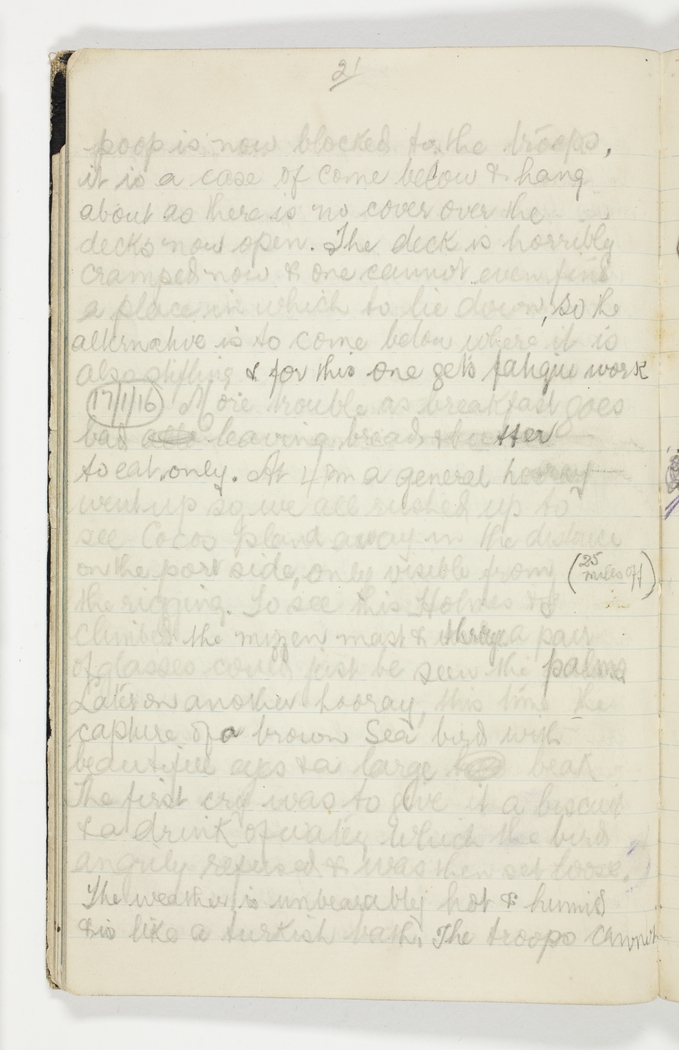 21
poop is now blocked to the troops,
it is a case of come below & hang
about as there is no cover over the
decks now open. The deck is horribly
cramped now & one cannot even find
a place in which to lie down, so the
alternative is to come below where it is
also stifling & for this one gets fatigue work
17/1/16 More trouble as breakfast goes
bad leaving bread & butter
to eat only. At 4 pm a general hooray
went up so we all rushed up to
see Cocos Island away in the distance
on the port side, only visible from (25 miles off)
the rigging. To see this Holmes & I
climbed the mizzen mast & through a pair
of glasses could just be seen the palms
Later on another hooray, this time the
capture of a brown Sea bird with
beautiful eyes & a large beak
The first cry was to give it a biscuit
& a drink of water which the bird
angrily refused & was then set loose.
The weather is unbearably hot & humid
& is like a turkish bath. The troops cannot